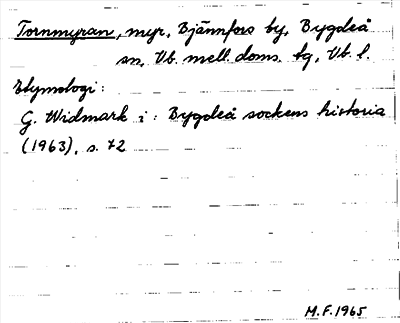 Tornmyran, myr, Bjännfors by, Bygdeå
sn, Vb. mell. doms. tg, Vb. l.
Etymologi:
G. Widmark i: Bygdeå sockens historia
(1963), s. 72
M.F. 1965